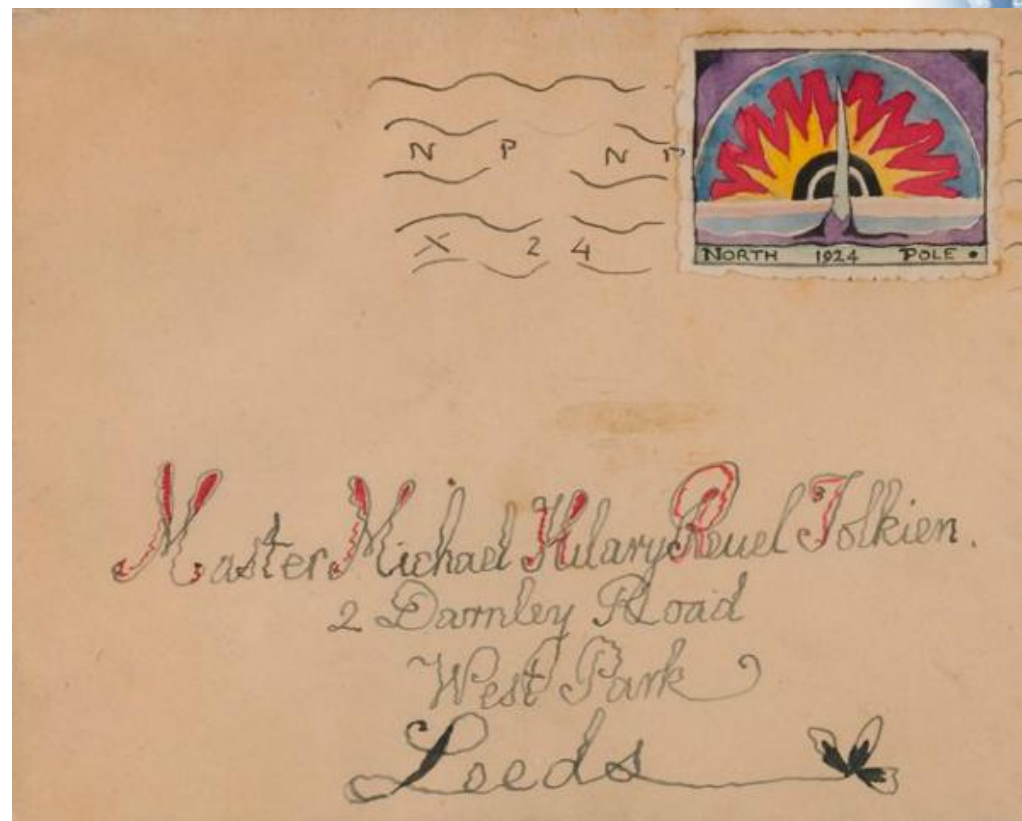 N P N P
X 24
NORTH 1924 POLE
Master Michael Hilary Reuel Tolkien.
2 Darnley Road
West Park
Leeds